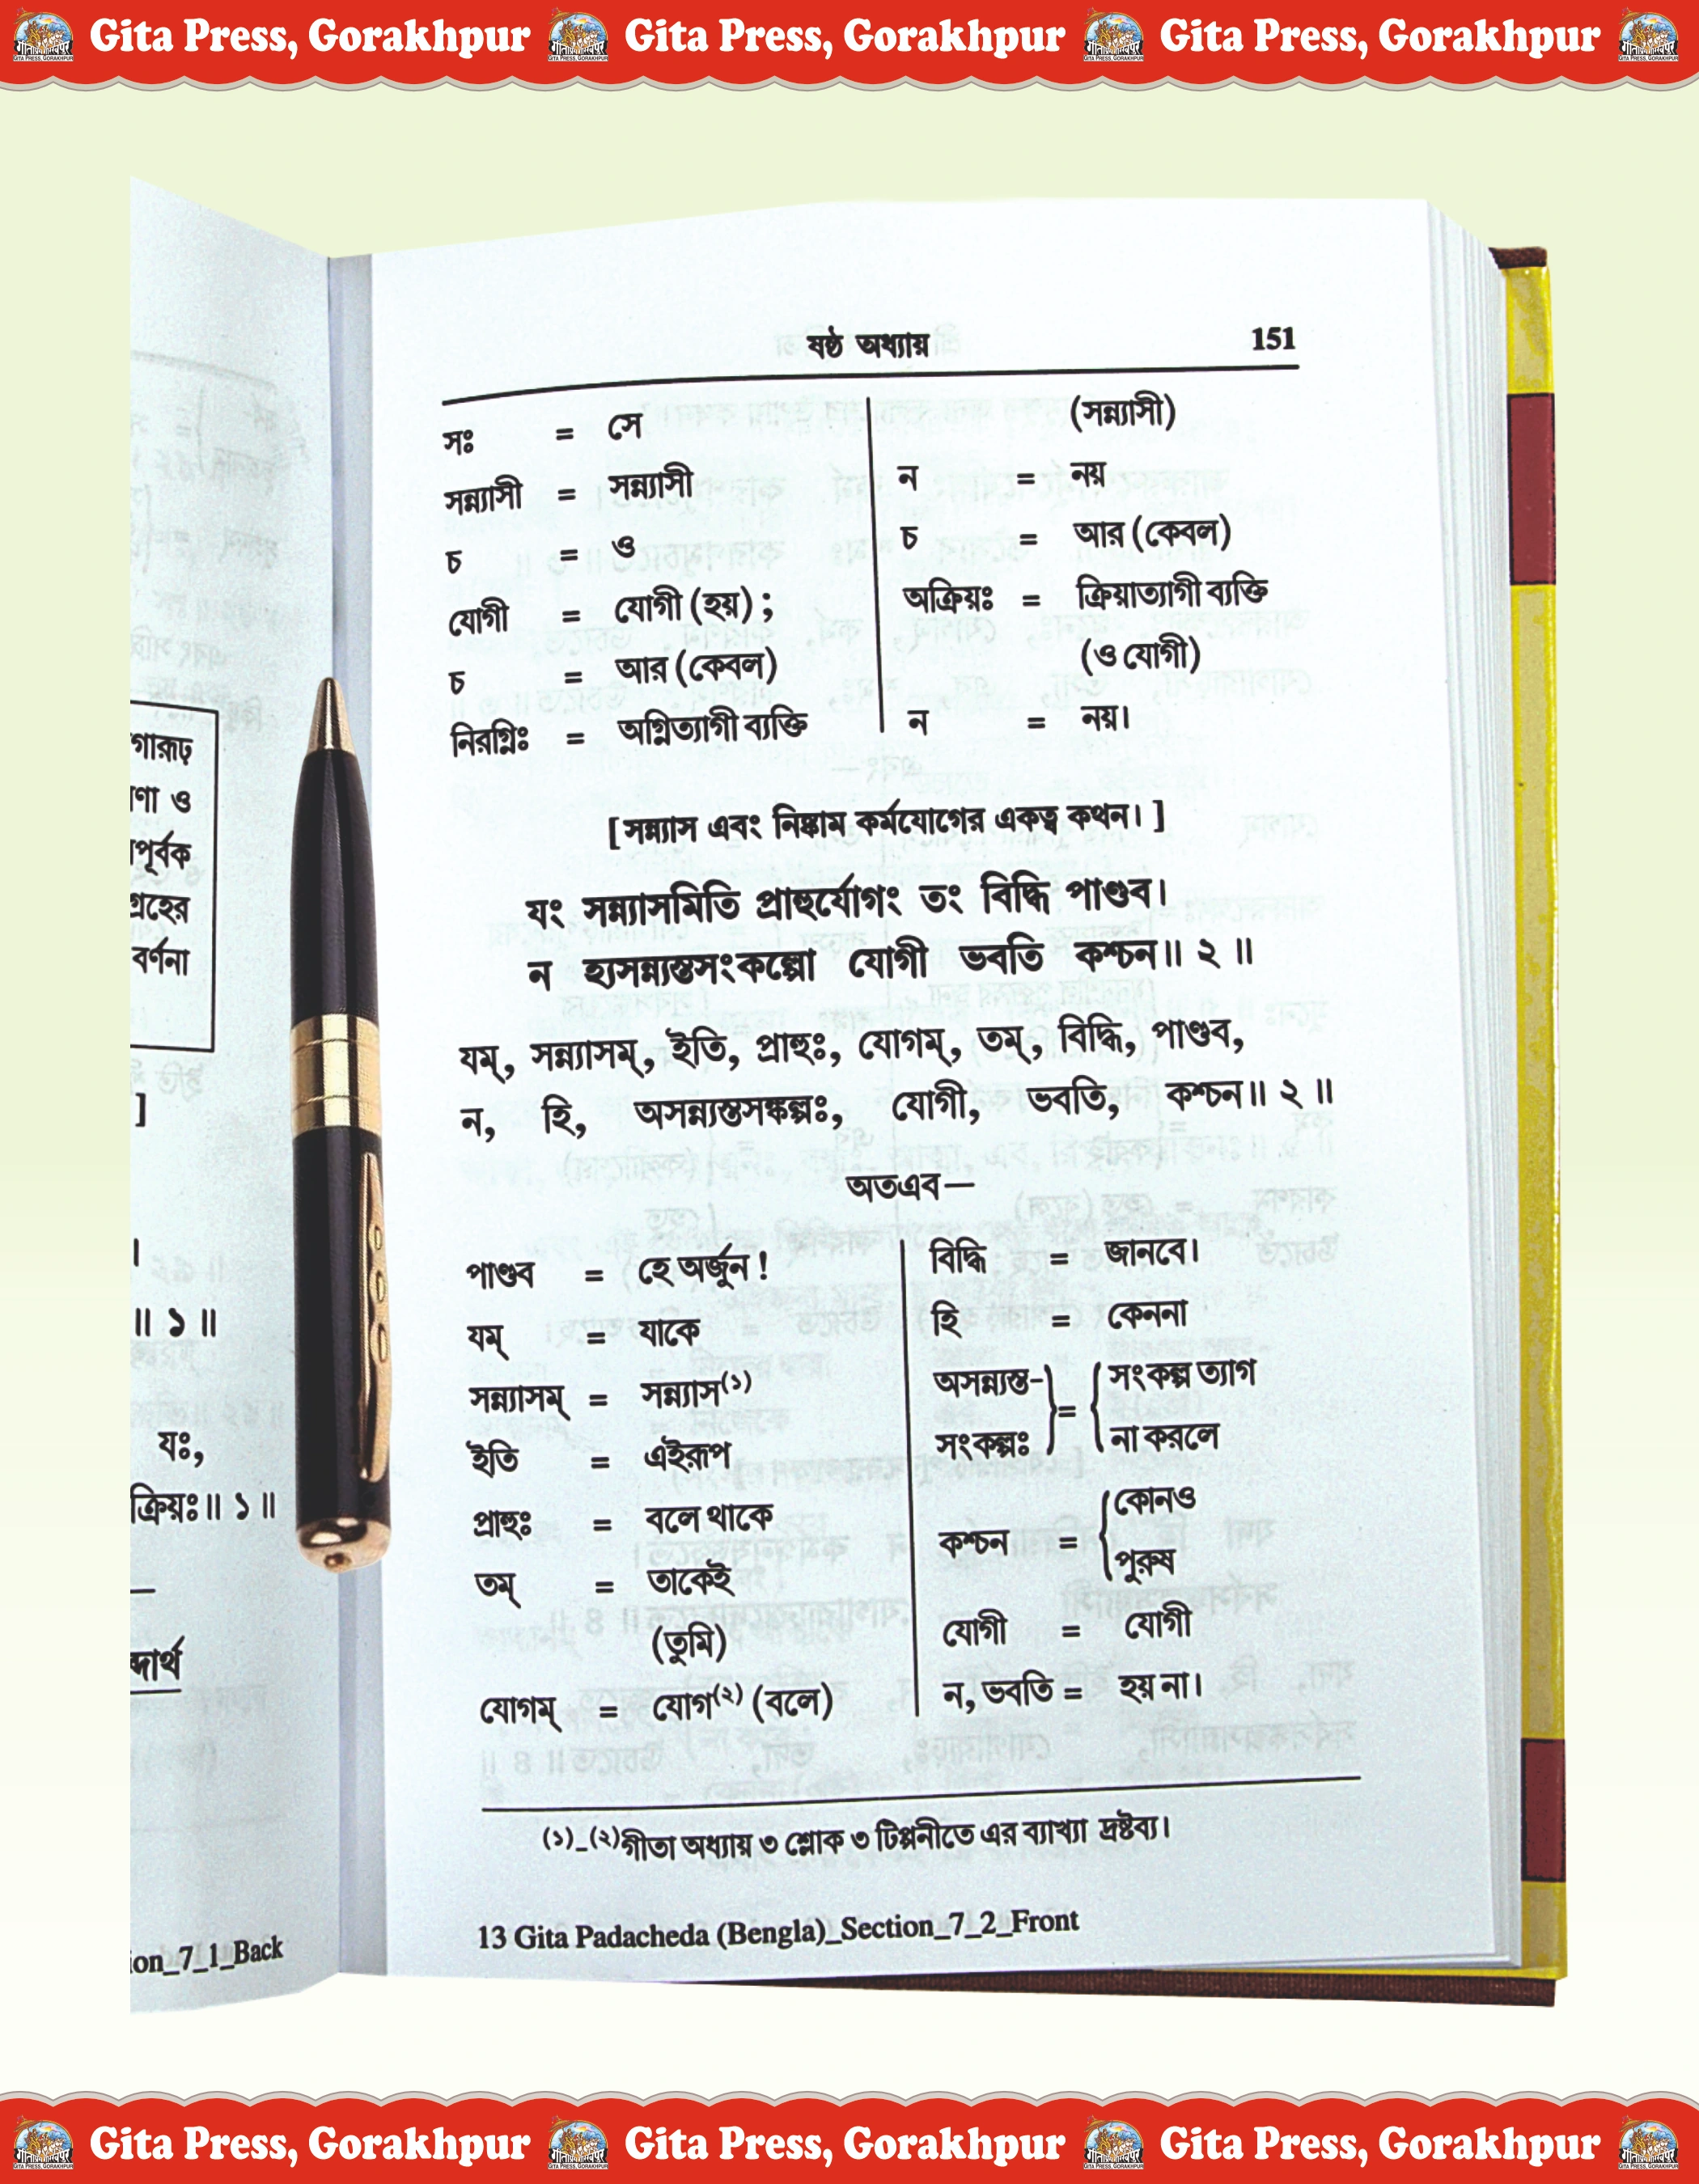 Gita Press, Gorakhpur Gita Press, Gorakhpur Gita Press, Gorakhpur
ষষ্ঠ অধ্যায় 151
সঃ = সে
সন্ন্যাসী = সন্ন্যাসী
চ = ও
যোগী = যোগী (হয়) ;
চ = আর (কেবল)
নিরগ্নিঃ = অগ্নিত্যাগী ব্যক্তি
(সন্ন্যাসী)
ন = নয়
চ = আর (কেবল)
অক্রিয়ঃ = ক্রিয়াত্যাগী ব্যক্তি
(ও যোগী)
ন = নয়।
[সন্ন্যাস এবং নিষ্কাম কর্মযোগের একত্ব কথন। ]
যং সন্ন্যাসমিতি প্রাহুর্যোগং তং বিদ্ধি পাণ্ডব।
ন হ্যসন্ন্যস্তসংকল্পো যোগী ভবতি কশ্চন॥ ২ ॥
যম্, সন্ন্যাসম্, ইতি, প্রাহুঃ, যোগম্, তম্, বিদ্ধি, পাণ্ডব,
ন, হি, অসন্ন্যস্তসঙ্কল্পঃ, যোগী, ভবতি, কশ্চন॥ ২ ॥
অতএব—
পাণ্ডব = হে অর্জুন !
যম্ = যাকে
সন্ন্যাসম্ = সন্ন্যাস(১)
ইতি = এইরূপ
প্রাহুঃ = বলে থাকে
তম্ = তাকেই
(তুমি)
যোগম্ = যোগ(২) (বলে)
বিদ্ধি = জানবে।
হি = কেননা
অসন্ন্যস্ত- সংকল্প ত্যাগ
=
সংকল্পঃ না করলে
কোনও
কশ্চন =
পুরুষ
যোগী = যোগী
ন, ভবতি = হয় না।
(১)_(২)গীতা অধ্যায় ৩ শ্লোক ৩ টিপ্পনীতে এর ব্যাখ্যা দ্রষ্টব্য।
13 Gita Padacheda (Bengla)_Section_7_2_Front
গারূঢ়
ণা ও
পূর্বক
গ্রহের
বর্ণনা
]
।
॥ ১ ॥
যঃ,
ক্রিয়ঃ॥ ১ ॥
—
ব্দার্থ
ion_7_1_Back
Gita Press, Gorakhpur Gita Press, Gorakhpur Gita Press, Gorakhpur